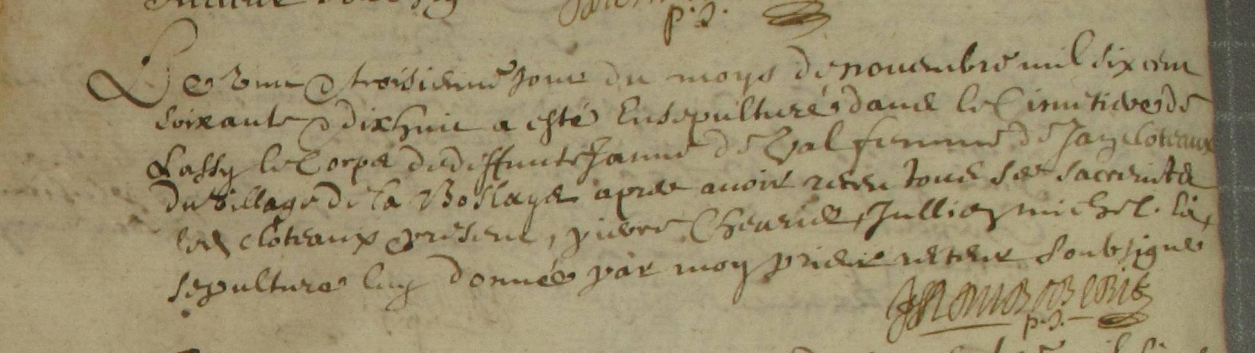 p. r.
Le vint & troisieme jour du moys de novembre mil six cent
soixante & dixhuit a esté Ensepulturé dans le Cimetiere de
Lassy le Corps de deffunte Janne de Val femme de Jan cloteaux
du village de la Boslaye apres avoir receu tous ses sacrents
les cloteaux presens, pierre Julliey michel. la
sepulture luy donnée par moy prieur recteur soubsigné
p. r.